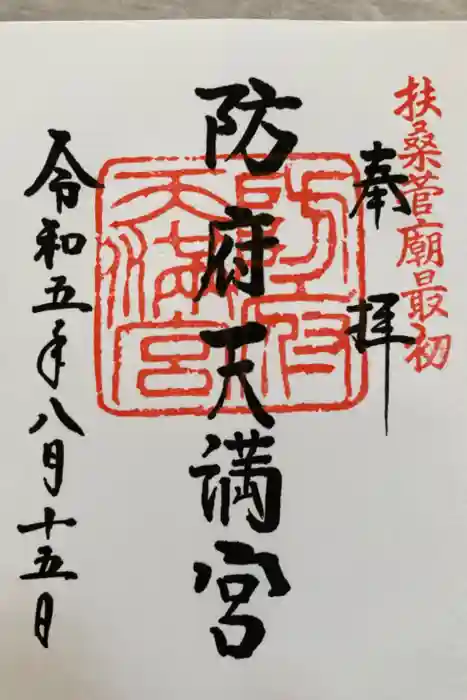 扶桑菅廟最初
奉拝
防府天満宮
防府天満宮
令和五年八月十五日